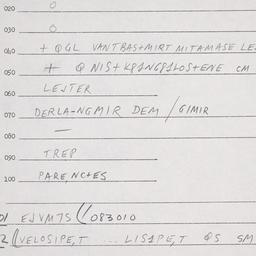 020 0
030 0
040 + QGL VANTBAS+MIRT MITAMASE LE
050 + Q NIS+
LEJTER
070 DERLA-NGMIR DEM / GIMIR
080 —
090 TREP
100 PARE,NC+ES
01 EJVM7S ( 083010
2 (VELOSIPE,T ... LIS1PE,T QS SM